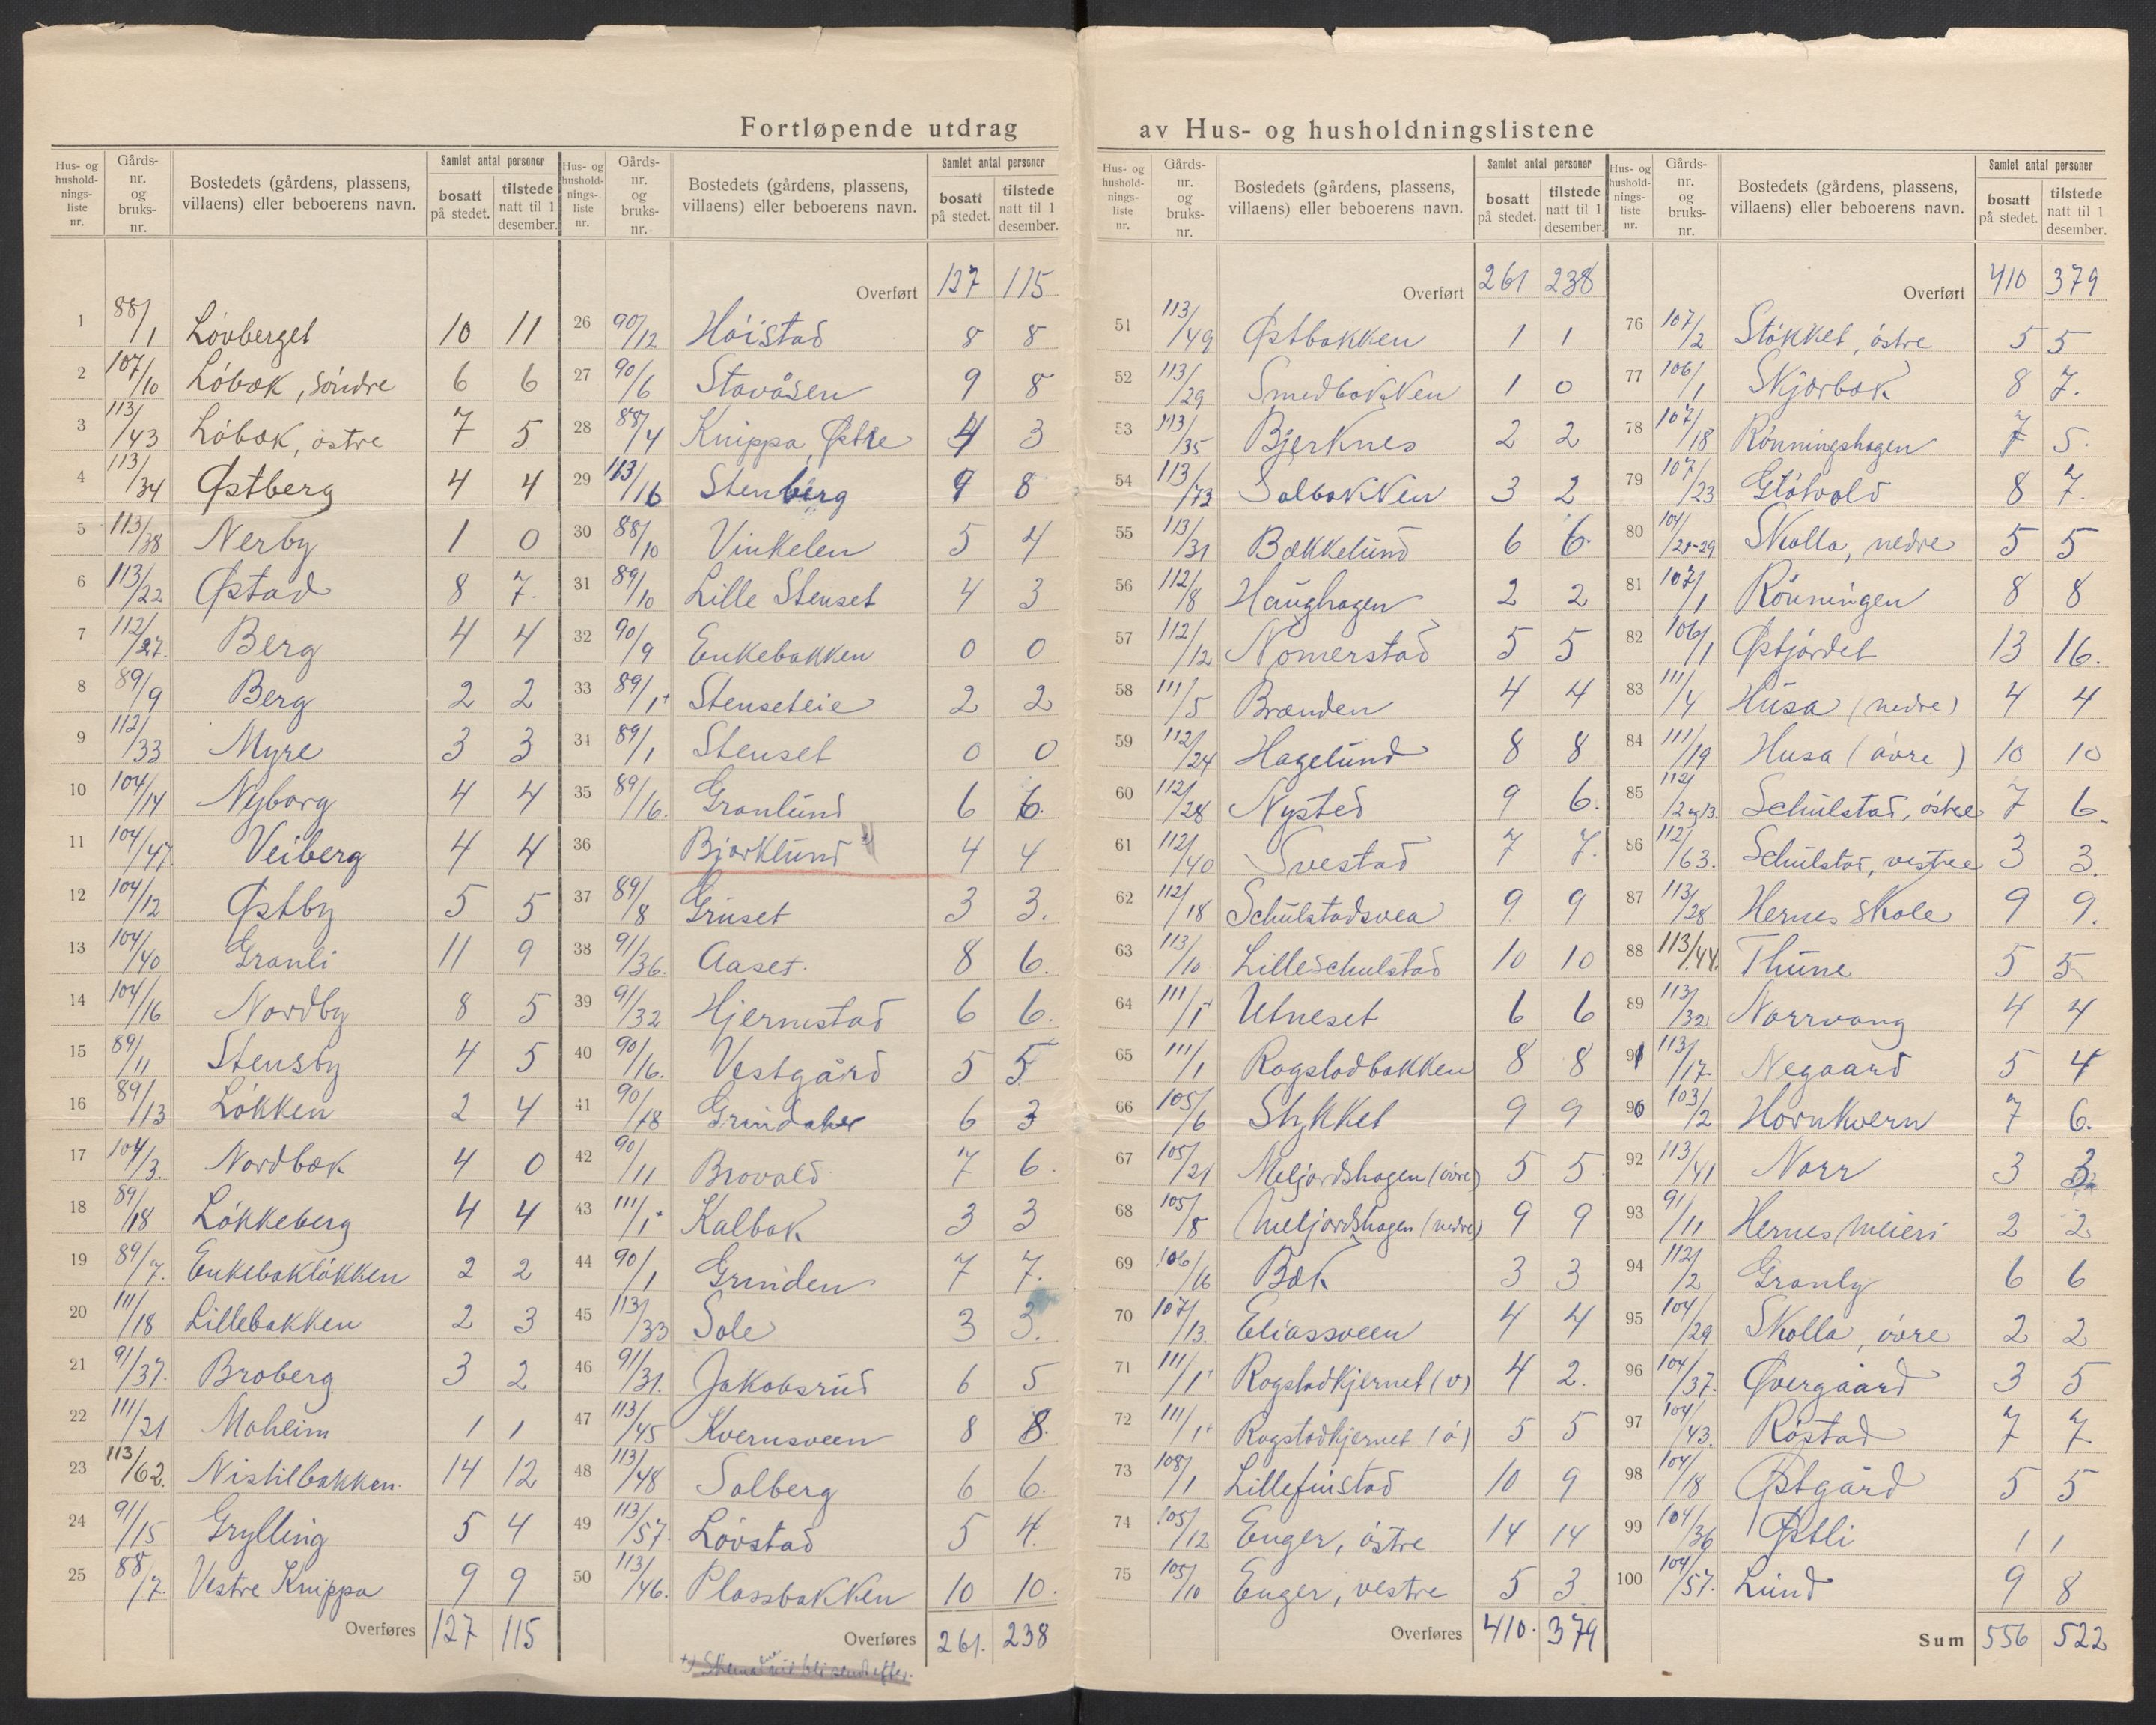 Fortløpende utdrag av Hus- og husholdningslistene
Hus- og husholdnings-liste nr. | Gårds-nr. og bruks-nr. | Bostedets (gårdens, plassens, villaens) eller beboerens navn. | Samlet antal personer bosatt på stedet. | tilstede natt til 1 desember.
1 88/1 Lövberget 10 11
2 107/10 Löbæk, söndre 6 6
3 113/43 Löbæk, östre 7 5
4 113/34 Østberg 4 4
5 113/38 Nerby 1 0
6 113/22 Østad 8 7.
7 112/27. Berg 4 4
8 89/9 Berg 2 2
9 112/33 Myre 3 3
10 104/14 Nyborg 4 4
11 104/47 Veiberg 4 4
12 104/12 Østby 5 5
13 104/40 Granli 11 9
14 104/16 Nordby 8 5
15 89/11 Stensby 4 5
16 89/13 Lökken 2 4
17 104/3. Nordbæk 4 0
18 89/18 Lökkeberg 4 4
19 89/7. Enkebaklökken 2 2
20 111/18 Lillebakken 2 3
21 91/37. Broberg 3 2
22 111/21 Moheim 1 1
23 113/62. Nistilbakken. 14 12
24 91/15 Grylling 5 4
25 88/7. Vestre Knippa 9 9
Overføres 127 115
Hus- og husholdnings-liste nr. | Gårds-nr. og bruks-nr. | Bostedets (gårdens, plassens, villaens) eller beboerens navn. | Samlet antal personer bosatt på stedet. | tilstede natt til 1 desember.
Overført 127 115
26 90/12 Höistad 8 8
27 90/6 Stavåsen 9 8
28 88/4 Knippa, Østre 4 3
29 113/16 Stenberg 9 8
30 88/10 Vinkelen 5 4
31 89/10 Lille Stenset 4 3
32 90/9 Enkebakken 0 0
33 89/1+ Stenseteie 2 2
34 89/1 Stenset 0 0
35 89/16. Granlund 6 6.
36 Bjørklund 4 4
37 89/8 Gruset 3 3.
38 91/36. Aaset. 8 6.
39 91/32 Hjernstad 6 6.
40 90/16. Vestgård 5 5
41 90/18 Grindaker 6 3
42 90/11 Brovold 7 6.
43 111/1+ Kalbæk 3 3
44 90/1 Grinden 7 7.
45 113/33 Sole 3 3.
46 91/31. Jakobsrud 6 5
47 113/45 Kvernsveen 8 8.
48 113/48 Solberg 6 6.
49 113/57. Lövstad 5 4.
50 113/46. Plassbakken 10 10.
Overføres 261. 238
+) Skema vil bli sendt efter.
Hus- og husholdnings-liste nr. | Gårds-nr. og bruks-nr. | Bostedets (gårdens, plassens, villaens) eller beboerens navn. | Samlet antal personer bosatt på stedet. | tilstede natt til 1 desember.
Overført 261 238
51 113/49 Østbakken 1 1
52 113/29 Smedbakken 1 0
53 113/35 Bjerknes 2 2
54 113/73 Solbakken 3 2
55 113/31 Bækkelund 6 6.
56 112/8 Haughagen 2 2
57 112/12 Nomerstad 5 5
58 111/5 Brænden 4 4
59 112/24 Hagelund 8 8
60 112/28 Nysted 9 6.
61 112/40 Svestad 7 7.
62 112/18 Schulstadsvea 9 9
63 113/10 Lilleschulstad 10 10
64 111/1+ Utneset 6 6
65 111/1 Rogstadbakken 8 8
66 105/6 Stykket 9 9
67 105/21 Meljordshagen (övre) 5 5
68 105/8 Meljordshagen (nedre) 9 9
69 106/16 Bæk 3 3
70 107/13. Eliassveen 4 4
71 111/1+ Rogstadkjernet (v) 4 2.
72 111/1+ Rogstadkjernet (ö) 5 5
73 108/1 Lillefinstad 10 9
74 105/12 Enger, östre 14 14
75 105/10 Enger, vestre 5 3
Overføres 410. 379
Hus- og husholdnings-liste nr. | Gårds-nr. og bruks-nr. | Bostedets (gårdens, plassens, villaens) eller beboerens navn. | Samlet antal personer bosatt på stedet. | tilstede natt til 1 desember.
Overført 410 379
76 107/2 Stökket, östre 5 5
77 106/1 Skjærbæk 8 7.
78 107/18 Rönningshagen 7 5.
79 107/23 Glötvold 8 7.
80 104/28-29 Skolla, nedre 5 5
81 107/1 Rönningen 8 8
82 106/1 Østjordet 13 16.
83 111/4 Husa (nedre) 4 4
84 111/19 Husa (övre) 10 10
85 112/2 og 13. Schulstad, östre 7 6.
86 112/63. Schulstad, vestre 3 3.
87 113/28 Hernes skole 9 9.
88 113/44. Thune 5 5
89 113/32 Norrvang 4 4
91 113/17. Negaard 5 4
90 103/2 Hornkvern 7 6.
92 113/41 Norr 3 3
93 91/11 Hernes Meieri 2 2
94 112/2 Granly 6 6
95 104/29 Skolla, övre 2 2
96 104/37. Øvergaard 3 5
97 104/43. Röstad 7 7
98 104/18 Østgård 5 5
99 104/36 Østli 1 1
100 104/57. Lund 9 8
Sum 556 522